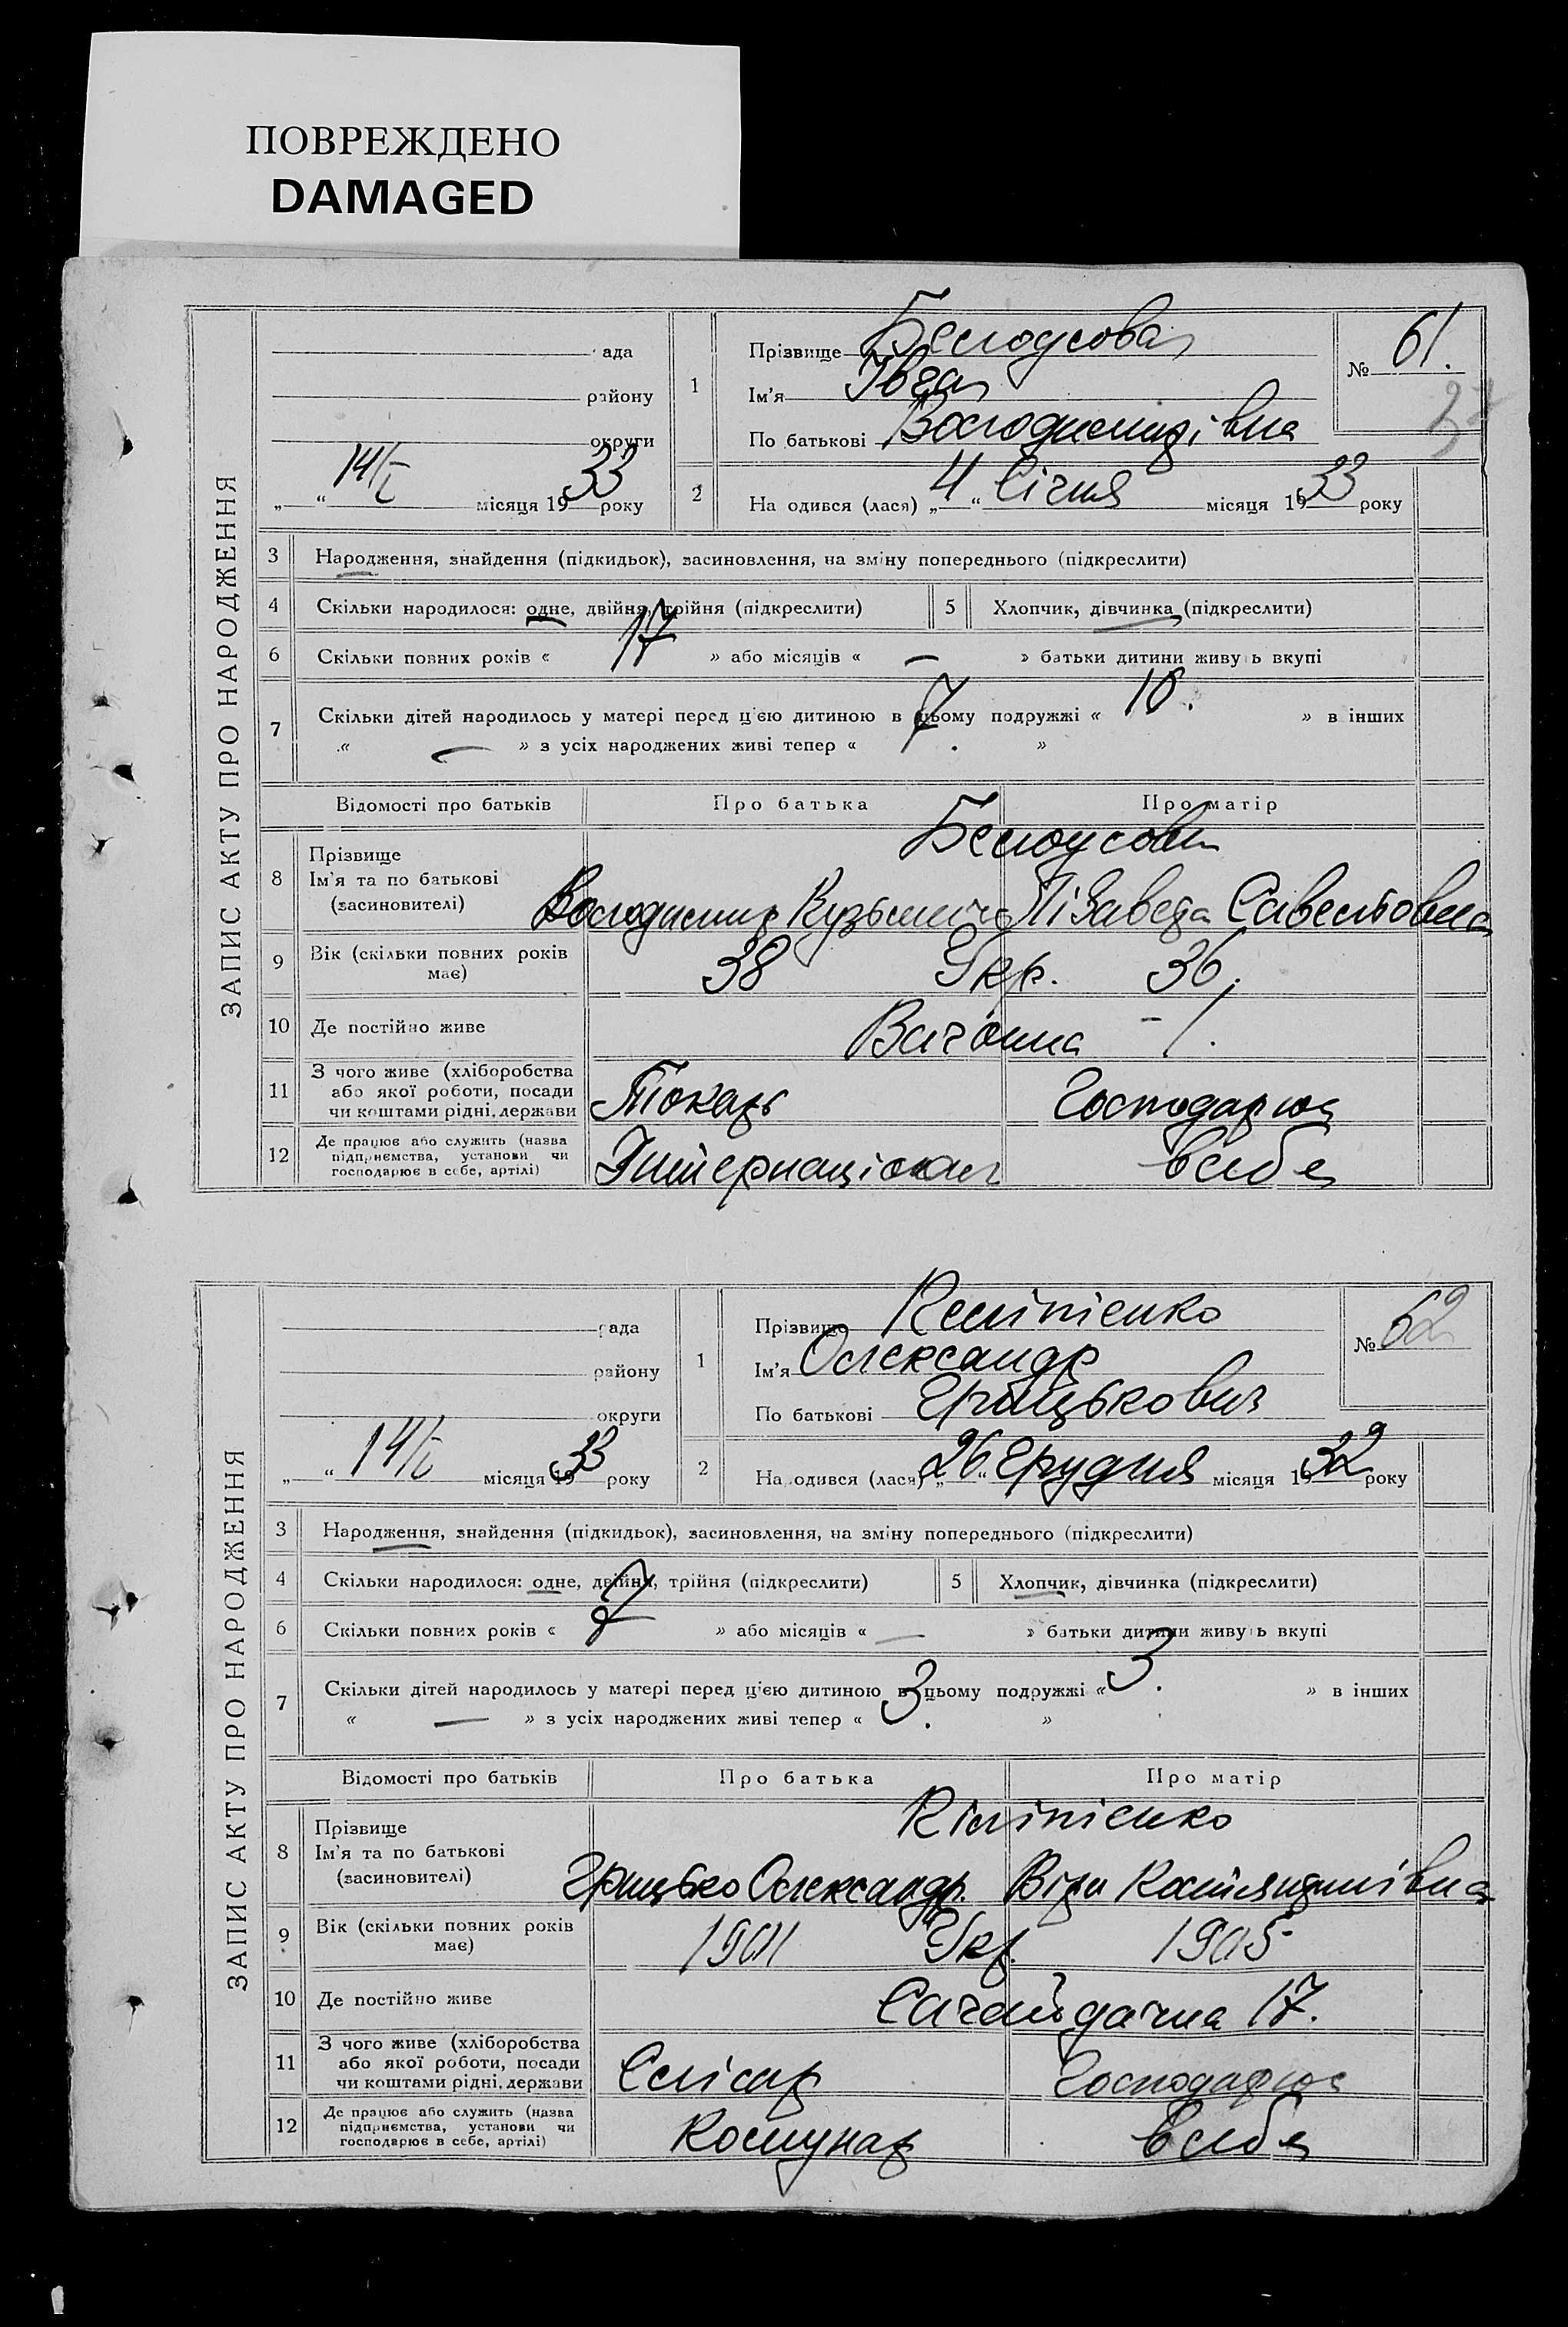 ПОВРЕЖДЕНО
DAMAGED
ЗАПИС АКТУ ПРО НАРОДЖЕННЯ
ада
району
округи
„ “ 14/I місяця 1933 року
1
Прізвище Белоусова
Ім'я Івга
По батькові Володимирівна
№ 61.
2
На одився (лася) „4“ Січня місяця 1933 року
3 Народження, знайдення (підкидьок), засиновлення, на зміну попереднього (підкреслити)
4 Скільки народилося: одне, двійня, трійня (підкреслити) 5 Хлопчик, дівчинка (підкреслити)
6 Скільки повних років « 17 » або місяців « — » батьки дитини живуь вкупі
7 Скільки дітей народилось у матері перед ц'єю дитиною в цьому подружжі « 10. » в інших
« — » з усіх народжених живі тепер « 7. »
Відомості про батьків Про батька Про матір
8 Прізвище
Ім'я та по батькові
(засиновителі)
Белоусови
Володимир Кузьмич Лізавета Савельовна
9 Вік (скільки повних років має) 38 Укр. 36.
10 Де постійно живе Вагонна - 1.
11 З чого живе (хліборобства або якої роботи, посади чи коштами рідні, держави Токарь Господарює
12 Де працює або служить (назва підприємства, установи чи господарює в себе, артілі) Інтернаціонал в себе
ЗАПИС АКТУ ПРО НАРОДЖЕННЯ
рада
району
округи
„ “ 14/I місяця 1933 року
1
Прізвище Келіпіенко
Ім'я Олександр
По батькові Грицькович
№ 62
2
На одився (лася) „26“ Грудня місяця 1932 року
3 Народження, знайдення (підкидьок), засиновлення, на зміну попереднього (підкреслити)
4 Скільки народилося: одне, двійня, трійня (підкреслити) 5 Хлопчик, дівчинка (підкреслити)
6 Скільки повних років « » або місяців « — » батьки дитини живуь вкупі
7 Скільки дітей народилось у матері перед ц'єю дитиною в цьому подружжі « 3. » в інших
« — » з усіх народжених живі тепер « 3. »
Відомості про батьків Про батька Про матір
8 Прізвище
Ім'я та по батькові
(засиновителі)
Кіліпіенко
Грицько Олександр. Віра Костянтинівна
9 Вік (скільки повних років має) 1901 Укр. 1905
10 Де постійно живе Сагайдачна 17.
11 З чого живе (хліборобства або якої роботи, посади чи коштами рідні, держави Слісар Господарює
12 Де працює або служить (назва підприємства, установи чи господарює в себе, артілі) Комунар в себе